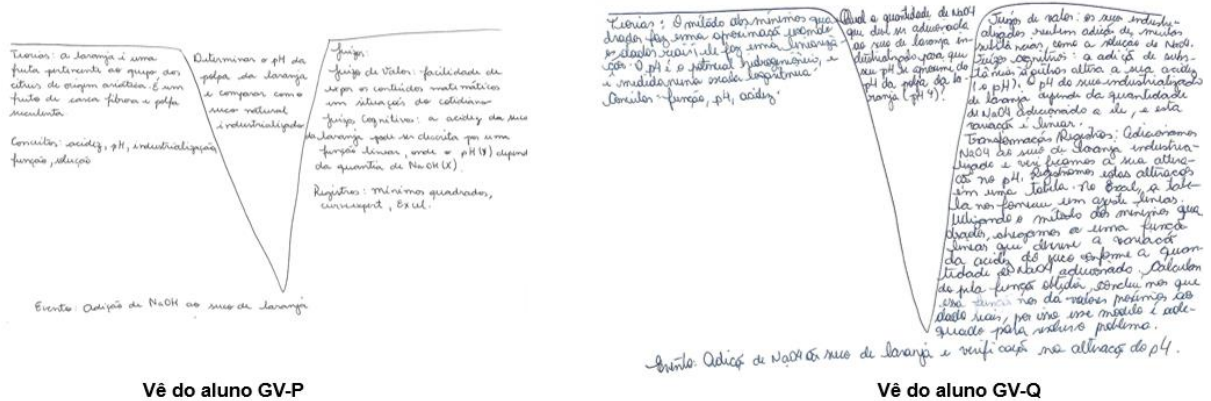 Teorias: a laranja é uma
fruta pertencente ao grupo dos
citrus de origem asiática. É um
fruto de casca fibrosa e polpa
suculenta.
Conceitos: acidez, pH, industrialização,
função, solução
Determinar o pH da
polpa da laranja
e comparar com o
suco natural
industrializado
Juízos:
Juízo de Valor: facilidade de
expor os conteúdos matemáticos
em situações do cotidiano
Juízo Cognitivo: a acidez do suco
da laranja pode ser descrita por uma
função linear, onde o pH (Y) depende
da quantia de NaOH (X).
Registros: Mínimos quadrados,
curvexpert, Excel.
Evento: Adição de NaOH ao suco de laranja
Vê do aluno GV-P
Teorias: O método dos mínimos qua-
drados faz uma aproximação usando
os dados reais, ele faz uma lineariza-
ção. O pH é o potencial hidrogeniônico, e
é medido numa escala logarítmica.
Conceitos - função, pH, acidez
Qual a quantidade de NaOH
que deve ser adicionada
ao suco de laranja in-
dustrializado para que
seu pH se aproxime do
pH da polpa da la-
ranja (pH 4)?
Juízos de valor: os sucos industri-
alizados recebem adição de muitas
substâncias, como a solução de NaOH.
Juízos cognitivos: a adição de subs-
tâncias à sucos altera a sua acidez
(o pH). O pH do suco industrializado
de laranja depende da quantidade
de NaOH adicionado a ele, e esta
variação é linear.
Transformação/Registros: Adicionamos
NaOH ao suco de laranja industria-
lizado e verificamos a sua altera-
ção no pH. Registramos estas alterações
em uma tabela. No Excel, a tabe-
la nos forneceu um ajuste linear.
Utilizando o método dos mínimos qua-
drados, chegamos a uma função
linear que descreve a variação
da acidez do suco conforme a quan-
tidade de NaOH adicionado. Calculan-
do pela função obtida, concluímos que
essa função nos dá valores próximos aos
dados reais, por isso esse modelo é ade-
quado para resolver o problema.
Evento: Adição de NaOH ao suco de laranja e verificação na alteração do pH.
Vê do aluno GV-Q